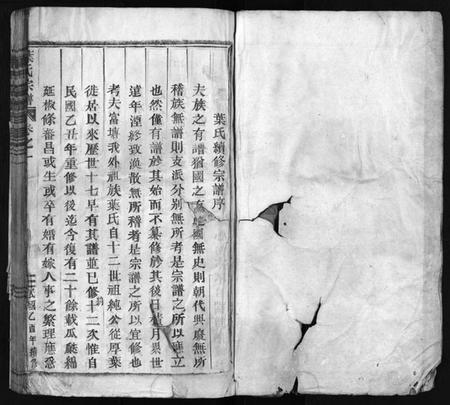 葉氏續修宗譜序
夫族之有譜猶國之有史國無史則朝代興廢無所
稽族無譜則支派分別無所考是宗譜之所以應立
也然僅有譜於其始而不纂修於其後日積月累世
遠年湮終致渙散無所稽考是宗譜之所以宜修也
考夫富塘我外祖族葉氏自十二世祖純公從厚葉
徙居以來歷世十七早有其譜並已修十二次惟自
民國乙丑年重修以後迄今復有二十餘載瓜瓞綿
延椒條蕃昌或生或卒有婚有嫁人事之繁理應悉
葉氏宗譜 卷之一
乙酉年續修